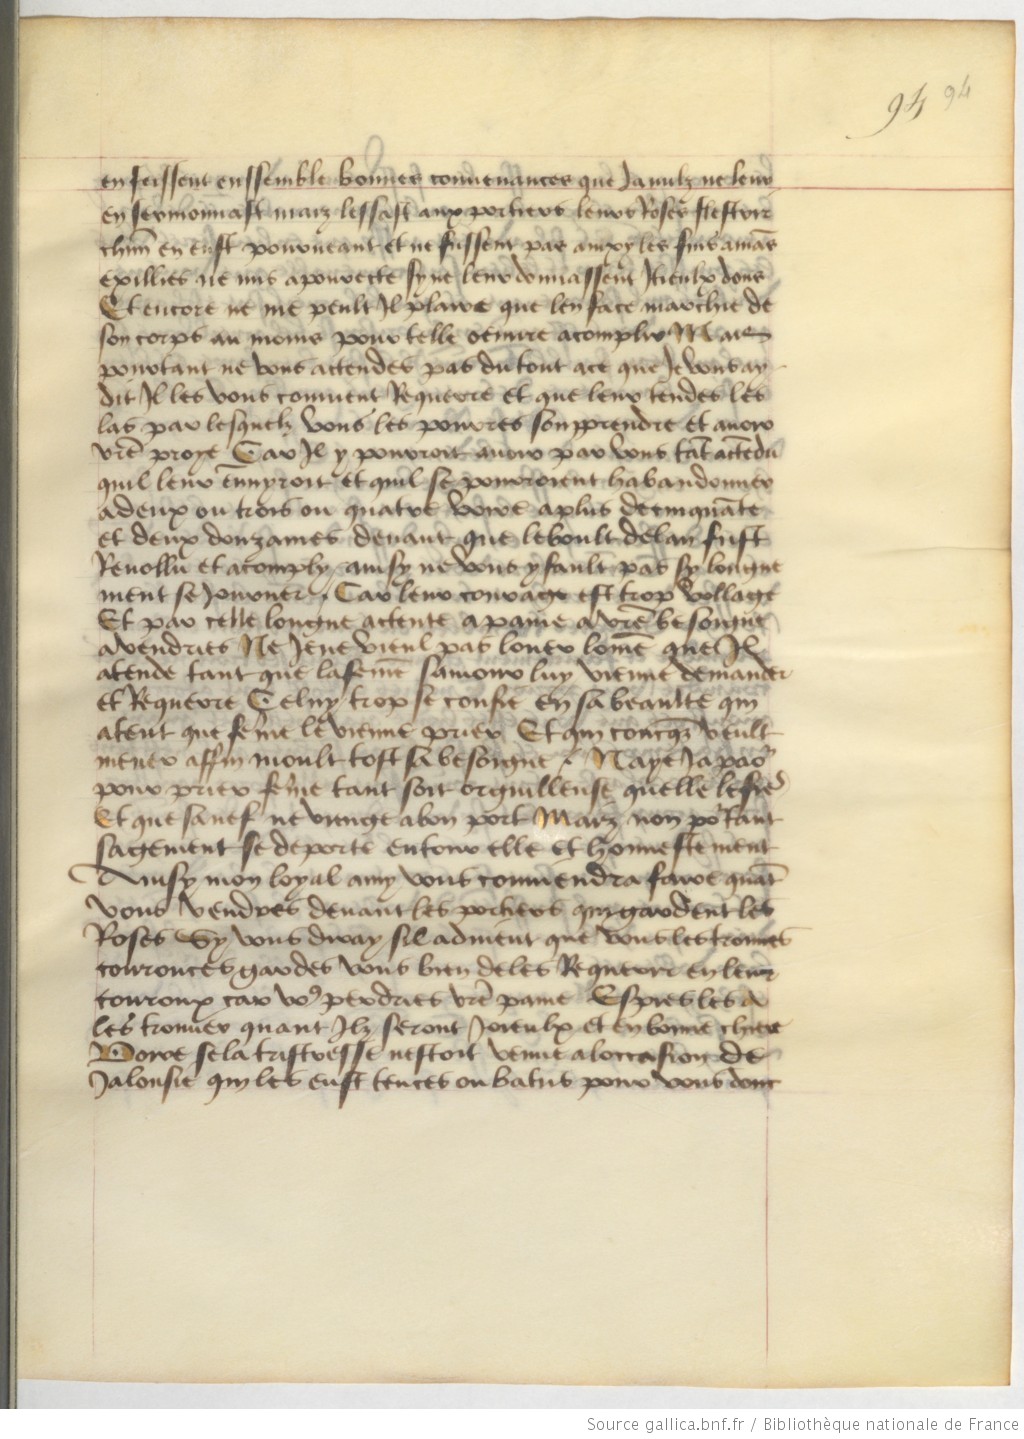 94 94
en feissent enssemble bonnes convenances que Ja nulz ne leur
en sermonnast marz lessast aux portiers leurs Roses flestrir
en eust pourveant et ne fussent par les fins amās
exillies ne mis a povrete sy ne leur donnassent Itieulx dons
Et encore ne me peult Il plaire que len face marchie de
son corps au moins pour telle oeuvre acomplir Mais
pourtant ne vous actendes pas du tout ace que Je vous ay
dit Il les vous convient Requerre et que leur tendes les
las par lesquelz vous les pourres sourprendre et avoir
vrē proye Car Il y pourroit avoir par vous tāt actēdu
quil leur ēnuyroit et quil se pourroient habandonner
a deux ou trois ou quatre voire a plus de cinquāte
et deux douzaines devant que le boult de lan fust
Revollu et acomply ainsy ne vous y fault pas sy longue
ment seJourner Car leur courage est trop vollage
Et par celle longue actente a paine a vrē besongne
avendries Ne Je ne vieul pas louer lomē que Il
atende tant que la femē samour luy vienne demander
et Requerre Celuy trop se confie en sa beaulte qui
atent que feme le vienne prier Et qui veult
mener affin moult tost sa besongne Naye Ja paor
pour prier feme tant soit orguilleuse quelle le
Et que sa nef ne viengne a bon port Marz non portant
sagement se deporte entour elle et honnestement
Ainsy mon loyal amy vous conviendra faire quāt
vous vendres devant les portiers qui gardent les
Roses Sy vous diray sil advient que vous les trouves
courouces gardes vous bien de les Requerre en leur
couroux car vos perdries vrē paine Espies les a
les trouver quant Ilz seront Joieulx et en bonne chiere
Voire se la tristresse nestoit venue a loccasion de
Jalousie qui les eust tences ou batus pour vous dont
Source gallica.bnf.fr / Bibliothèque nationale de France